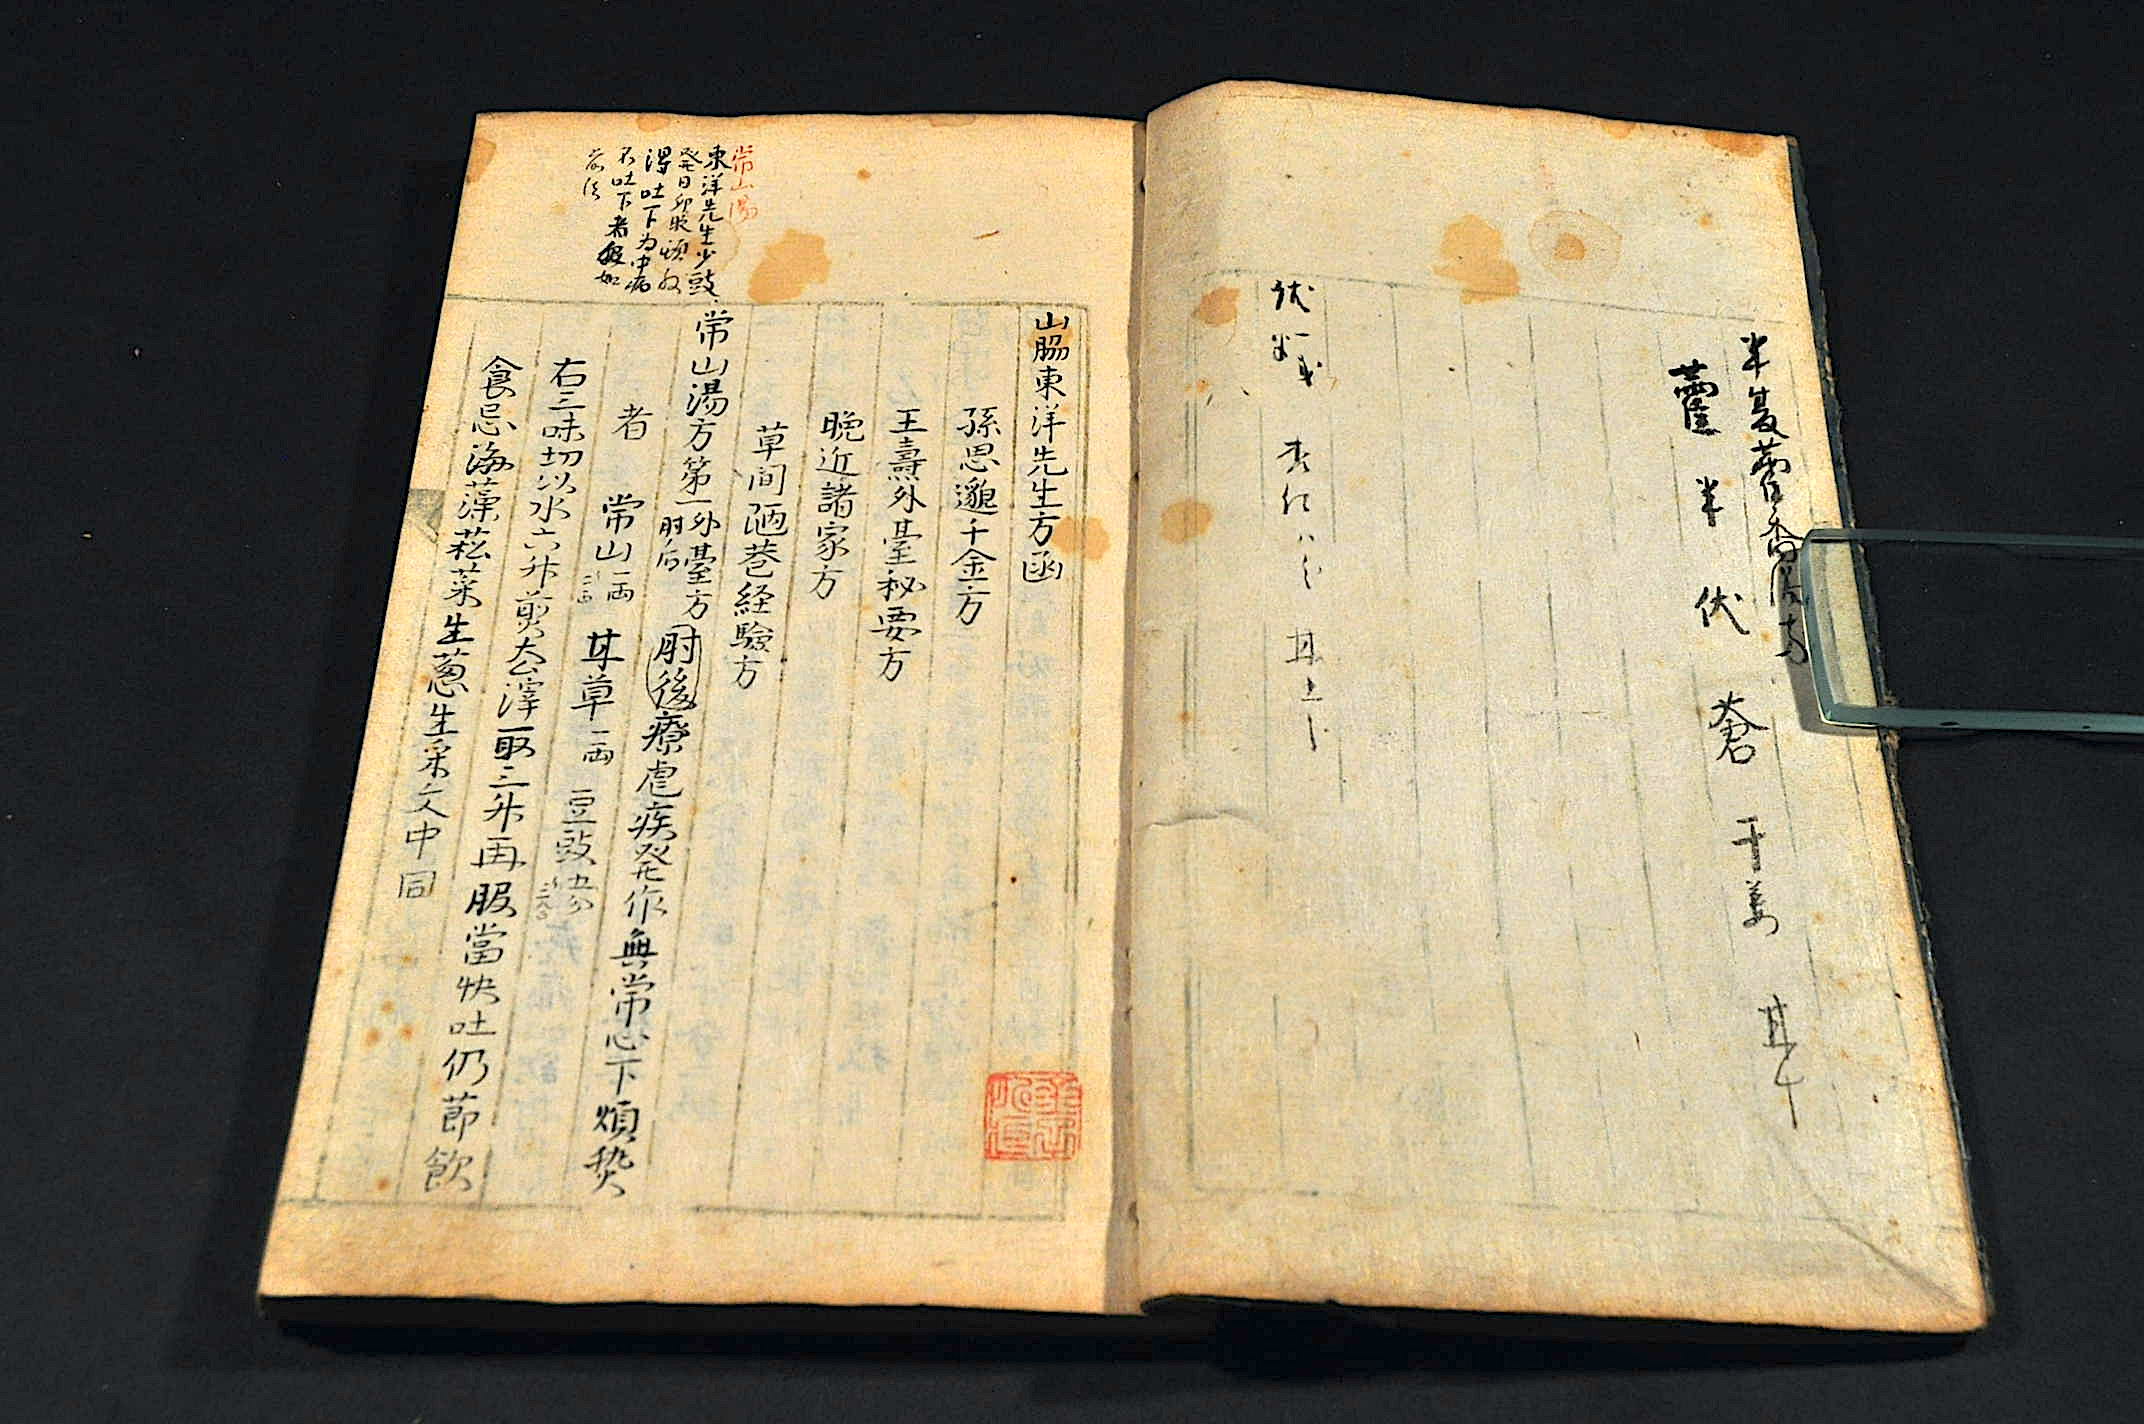 半夏藿香湯方
藿 半 伏 蒼 干姜 甘
山脇東洋先生方函
孫思邈千金方
王壽外臺秘要方
晩近諸家方
草間陋巷経驗方
常山湯
東洋先生少豉
發日卯服頓服
得吐下为中病
不吐下者服如
前法
常山湯方第一外臺方肘后
肘後療瘧疾発作無常心下煩熱
者 常山二両 甘草一両 豆豉五勺
右三味切以水六升煎去滓取三升再服當快吐仍節飲
食忌海藻菘菜生葱生菜文中同